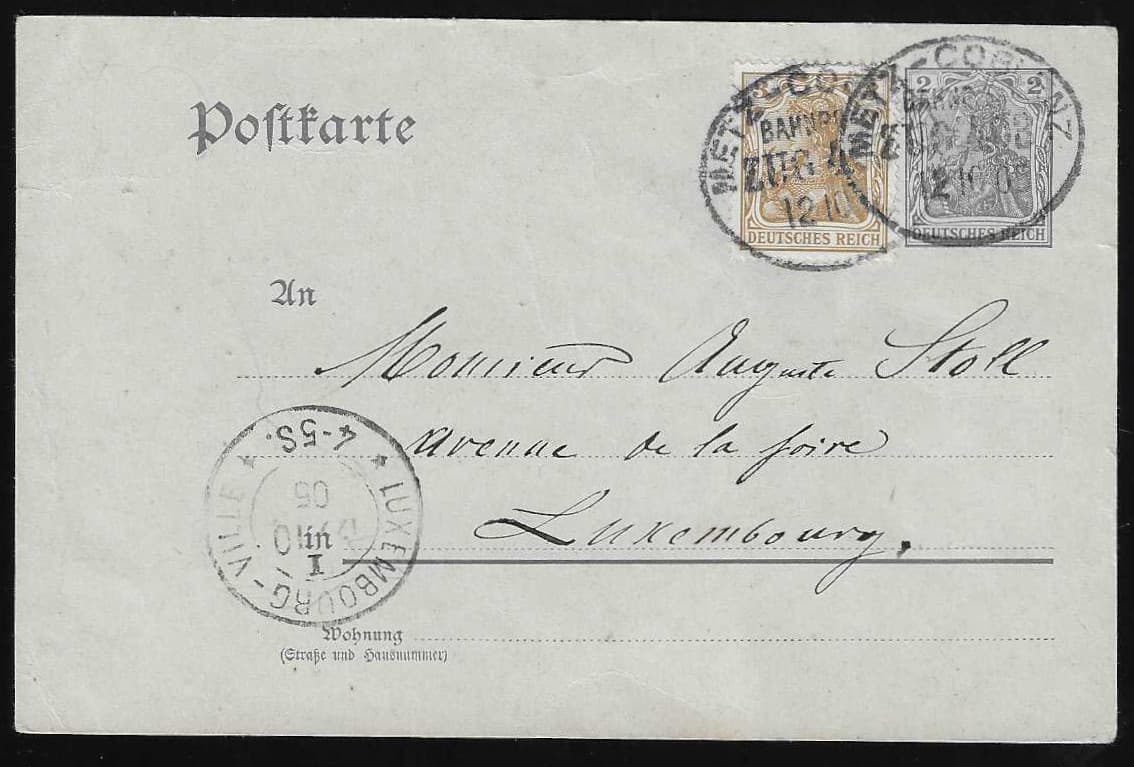 Postkarte
3
METZ-CO
BAHNPO
ZUG 4
12 10
DEUTSCHES REICH
2 2
METZ-COBLENZ
BAHNP
ZUG
12 10 0
DEUTSCHES REICH
An
Monsieur Auguste Stoll
Avenue de la foire
Luxembourg.
in
LUXEMBOURG-VILLE
4-5S.
10
05
I
Wohnung
(Straße und Hausnummer)